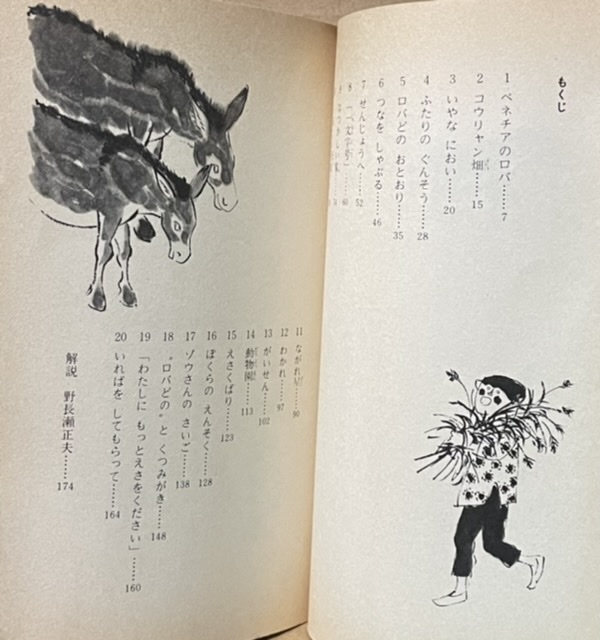 もくじ
1 ベネチアのロバ……7
2 コウリャン畑……15
3 いやな におい……20
4 ふたりの ぐんそう……28
5 ロバどの おとおり……35
6 つなを しゃぶる……46
7 せんじょうへ……52
8 60
11 ながれ星……90
12 わかれ……97
13 がいせん……102
14 動物園……113
15 えさくばり……123
16 ぼくらの えんそく……128
17 ゾウさんの さいご……138
18 “ロバどの”と くつみがき……148
19 「わたしに もっとえさをください」……160
20 いればを してもらって……164
解説 野長瀬正夫……174